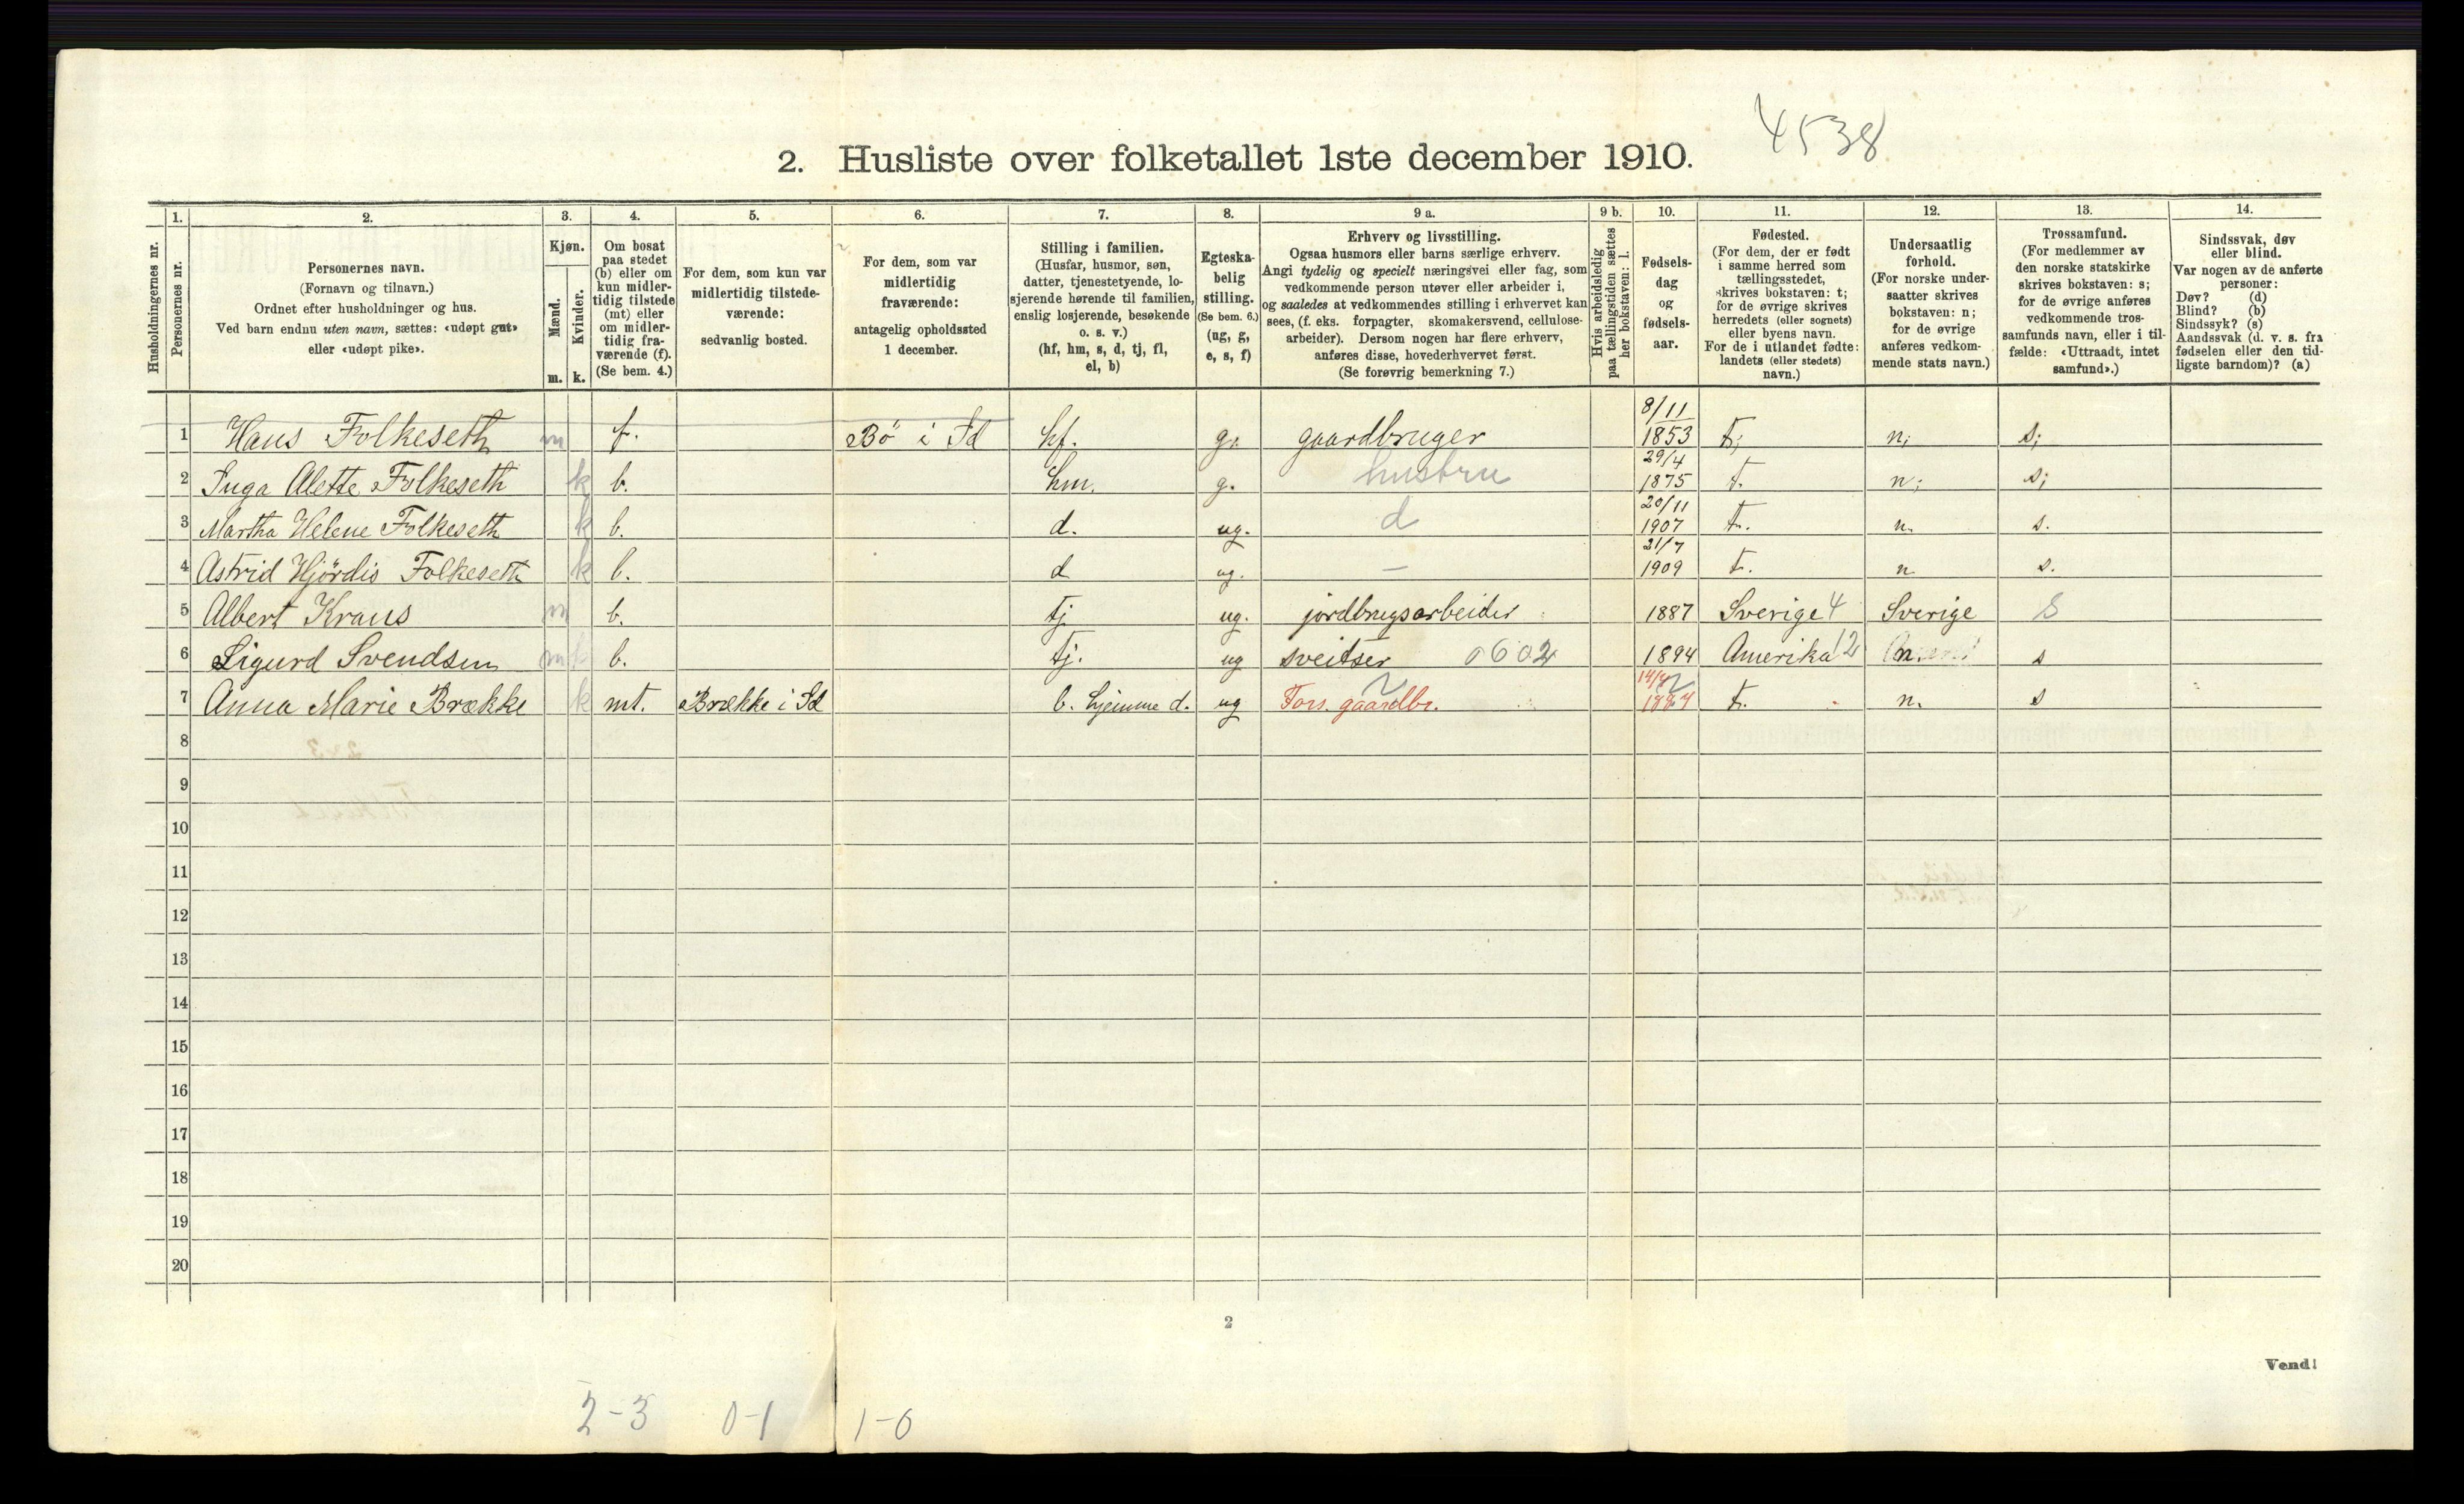 4538
2. Husliste over folketallet 1ste december 1910.
Husholdningernes nr.
1. Personernes nr.
2. Personernes navn. (Fornavn og tilnavn.) Ordnet efter husholdninger og hus. Ved barn endnu uten navn, sættes: «udøpt gut» eller «udøpt pike».
3. Kjøn. Mænd. m. Kvinder. k.
4. Om bosat paa stedet (b) eller om kun midlertidig tilstede (mt) eller om midlertidig fraværende (f). (Se bem. 4.)
5. For dem, som kun var midlertidig tilstedeværende: sedvanlig bosted.
6. For dem, som var midlertidig fraværende: antagelig opholdssted 1 december.
7. Stilling i familien. (Husfar, husmor, søn, datter, tjenestetyende, losjerende hørende til familien, enslig losjerende, besøkende o. s. v.) (hf, hm, s, d, tj, fl, el, b)
8. Egteskabelig stilling. (Se bem. 6.) (ug, g, e, s, f)
9 a. Erhverv og livsstilling. Ogsaa husmors eller barns særlige erhverv. Angi tydelig og specielt næringsvei eller fag, som vedkommende person utøver eller arbeider i, og saaledes at vedkommendes stilling i erhvervet kan sees, (f. eks. forpagter, skomakersvend, cellulosearbeider). Dersom nogen har flere erhverv, anføres disse, hovederhvervet først. (Se forøvrig bemerkning 7.)
9 b. Hvis arbeidsledig paa tællingstiden sættes her bokstaven: l.
10. Fødselsdag og fødselsaar.
11. Fødested. (For dem, der er født i samme herred som tællingsstedet, skrives bokstaven: t; for de øvrige skrives herredets (eller sognets) eller byens navn. For de i utlandet fødte: landets (eller stedets) navn.)
12. Undersaatlig forhold. (For norske undersaatter skrives bokstaven: n; for de øvrige anføres vedkommende stats navn.)
13. Trossamfund. (For medlemmer av den norske statskirke skrives bokstaven: s; for de øvrige anføres vedkommende trossamfunds navn, eller i tilfælde: «Uttraadt, intet samfund».)
14. Sindssvak, døv eller blind. Var nogen av de anførte personer: Døv? (d) Blind? (b) Sindssyk? (s) Aandssvak (d. v. s. fra fødselen eller den tidligste barndom)? (a)
1 Hans Folkeseth m f. Bö i Id hf. g. gaardbruger 8/11 1853 t; n; s;
2 Inga Alette Folkeseth k b. hm. g. hustru 29/4 1875 t. n; s;
3 Martha Helene Folkeseth k b. d. ug. d 20/11 1907 t. n. s.
4 Astrid Hjördis Folkeseth k b. d ug. — 21/7 1909 t. n s.
5 Albert Kraus m b. tj ug. jordbrugsarbeider 1887 Sverige 4 Sverige S
6 Sigurd Svendsen m b. tj. ug sveitser 0602 1894 Amerika 12 n s
7 Anna Marie Brække k mt. Brække i Id b. hjemme d. ug Fors. gaardbr. t. n. s
8
9
10
11
12
13
14
15
16
17
18
19
20
2
Vend!
2-3 0-1 1-0